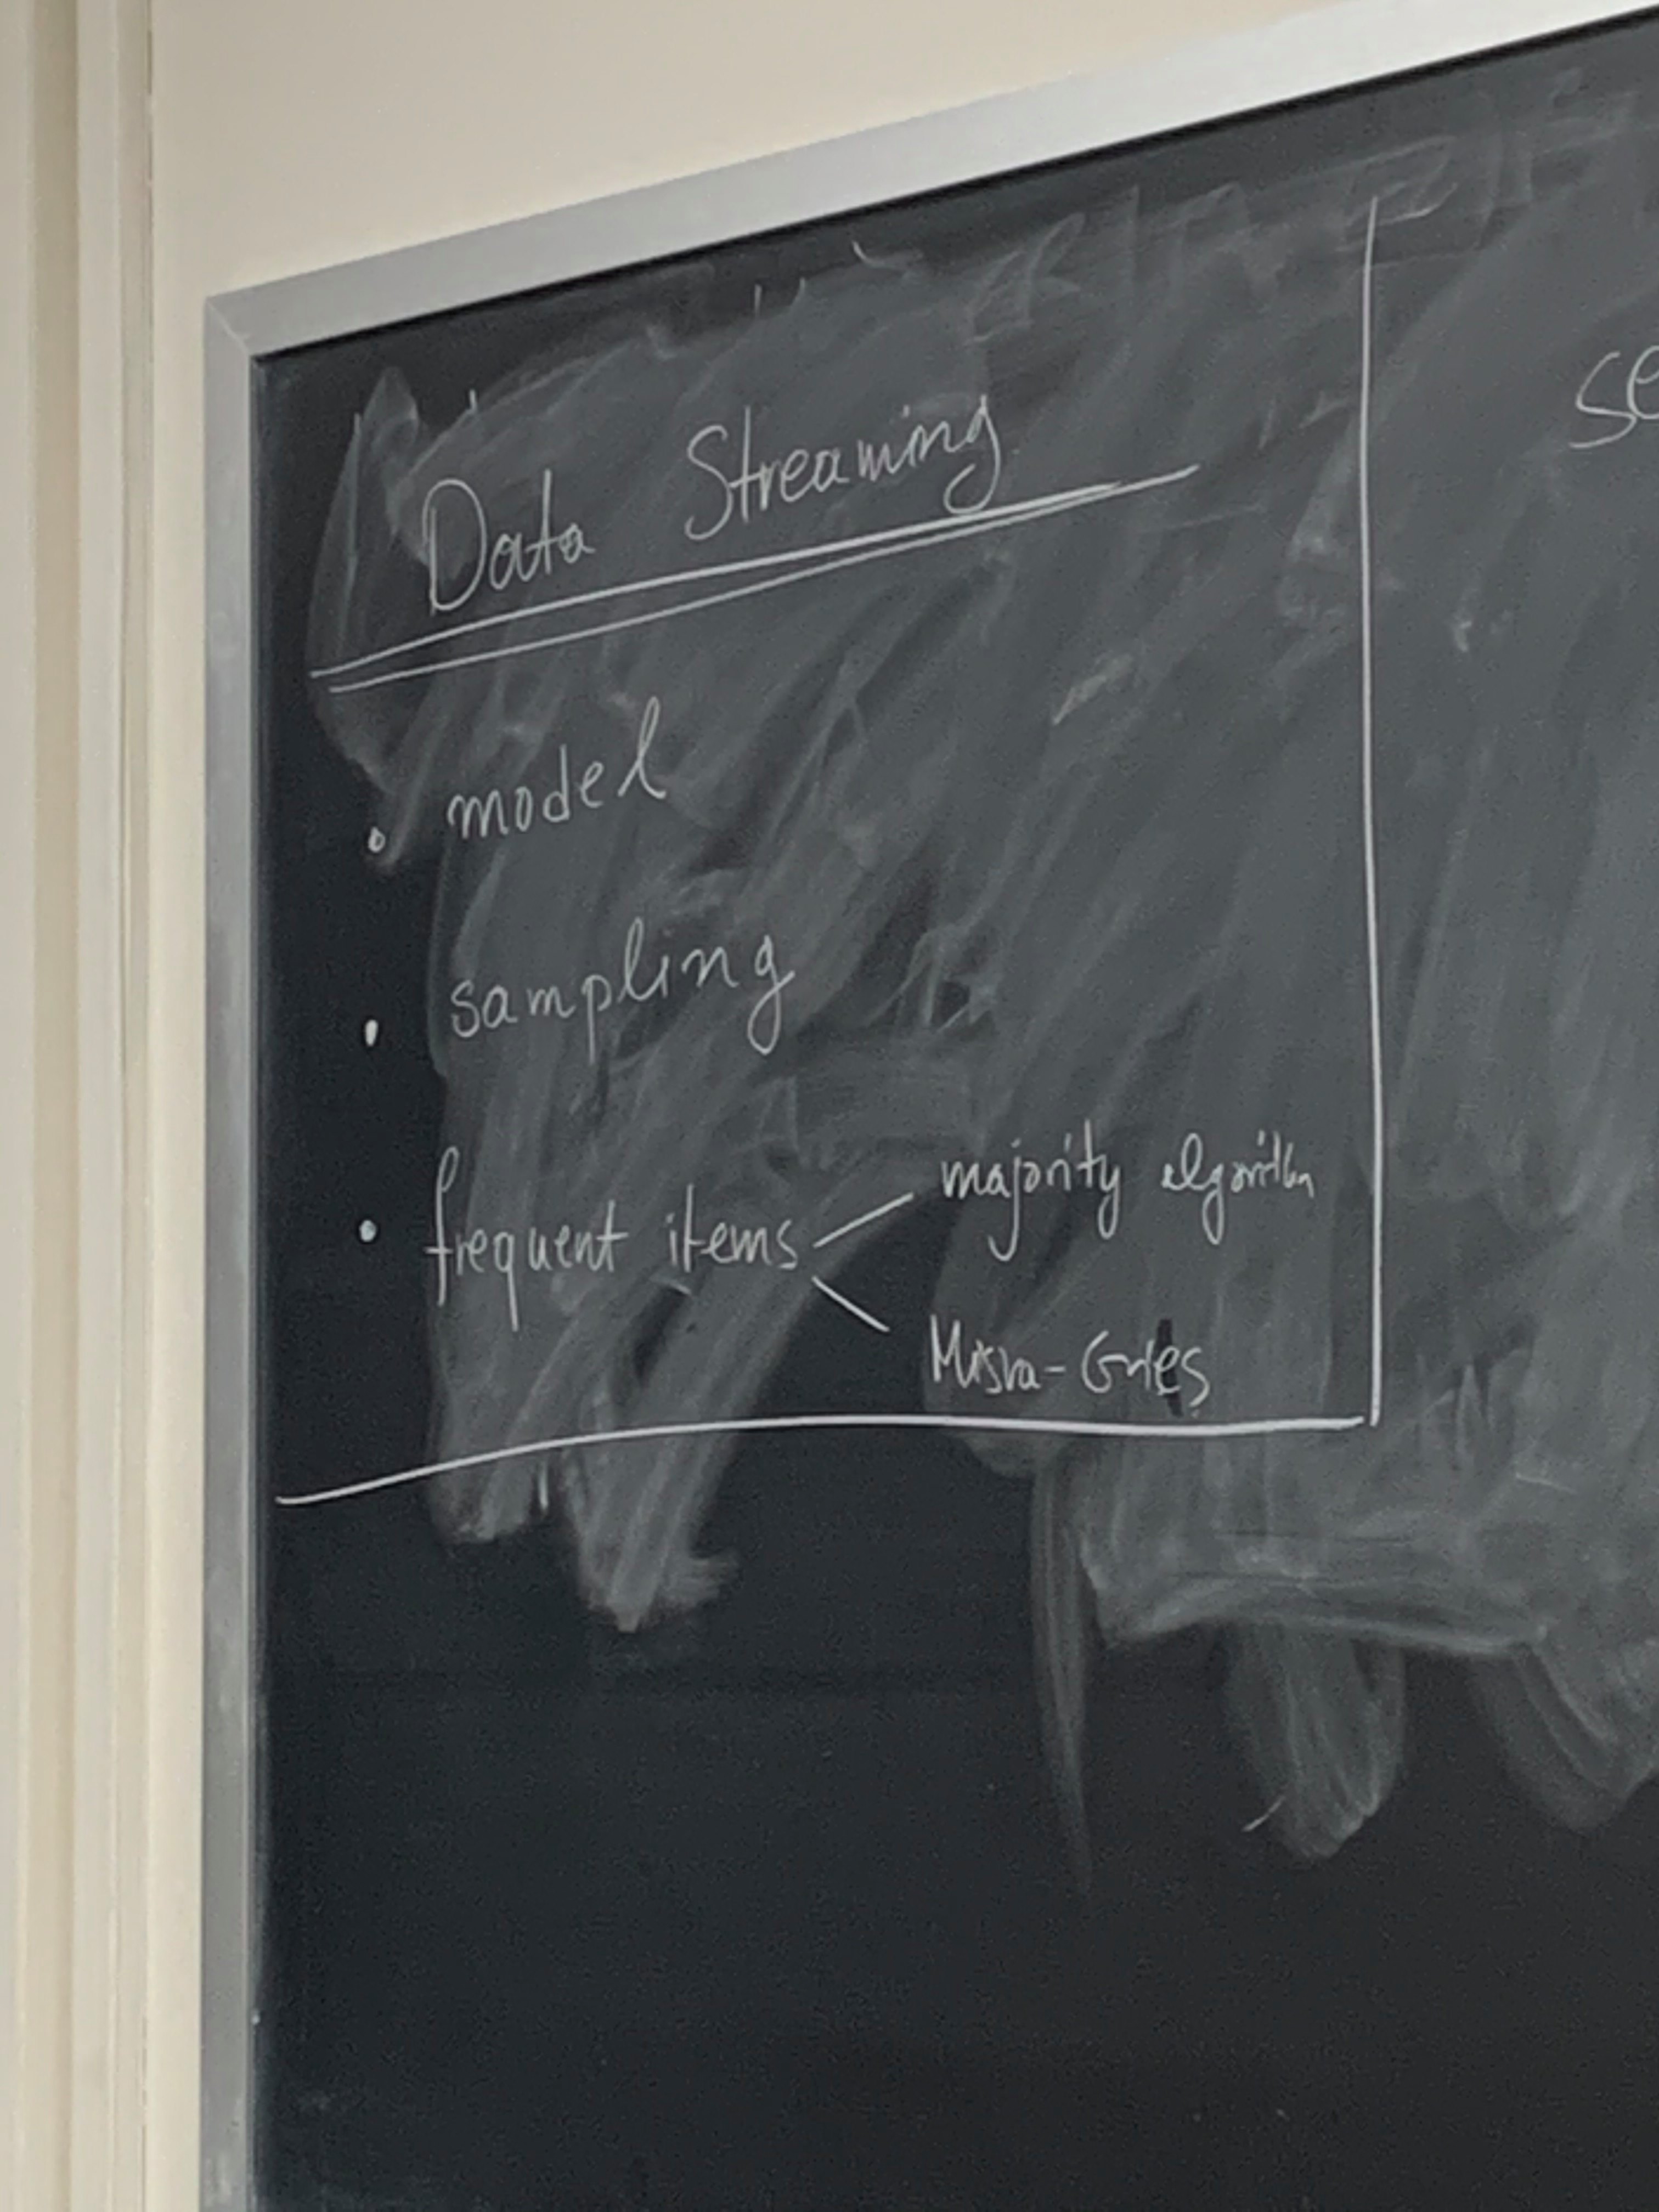 Data Streaming
• model
• sampling
• frequent items
majority algorithm
Misra-Gries
se